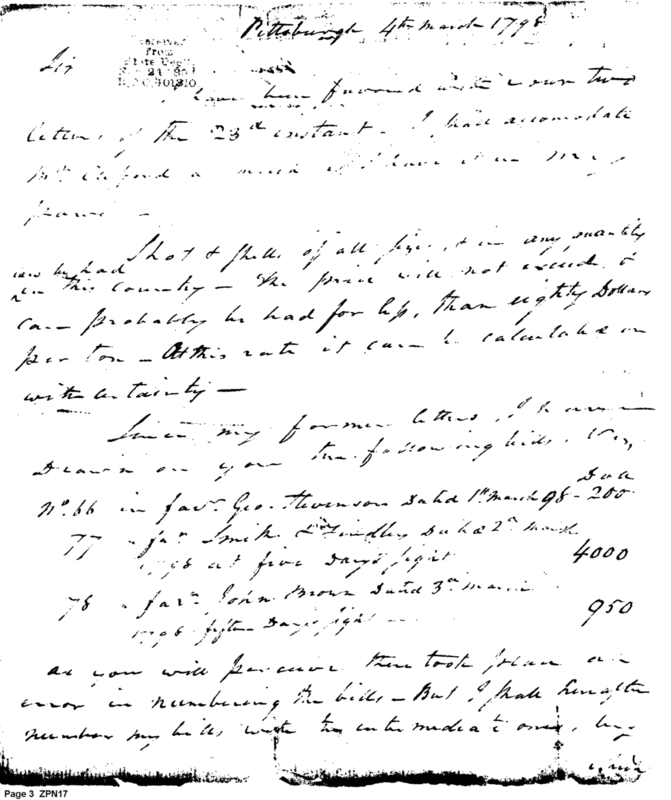 Pittsburgh 4th March 1798
Sir
Received
From
State Dept
have been favored with your two
letters of the 23d instant - I shall accomodate
Mr as much as I have it in my
power -
Shot & shells of all sizes, & in any quantity
can be had
in this Country - the price will not exceed &
can probably be had for less, than eighty Dollars
per ton - At this rate it can be calculated on
with certainty -
Since my former letters, I have
Drawn on you the following bills, Viz,
Doll
No. 66 in favr. Geo. Stevenson Dated 1st March 98 - 200
77 " favr. Smith & Findley Dated 2nd March
1798 at five Days sight 4000
78 " favr. John Brown Dated 3rd March
1798 fifteen Days sight 950
as you will perceive there took place an
error in numbering the bills - But I shall hereafter
number my bills with the intermediate ones, by
which
Page 3 ZPN17